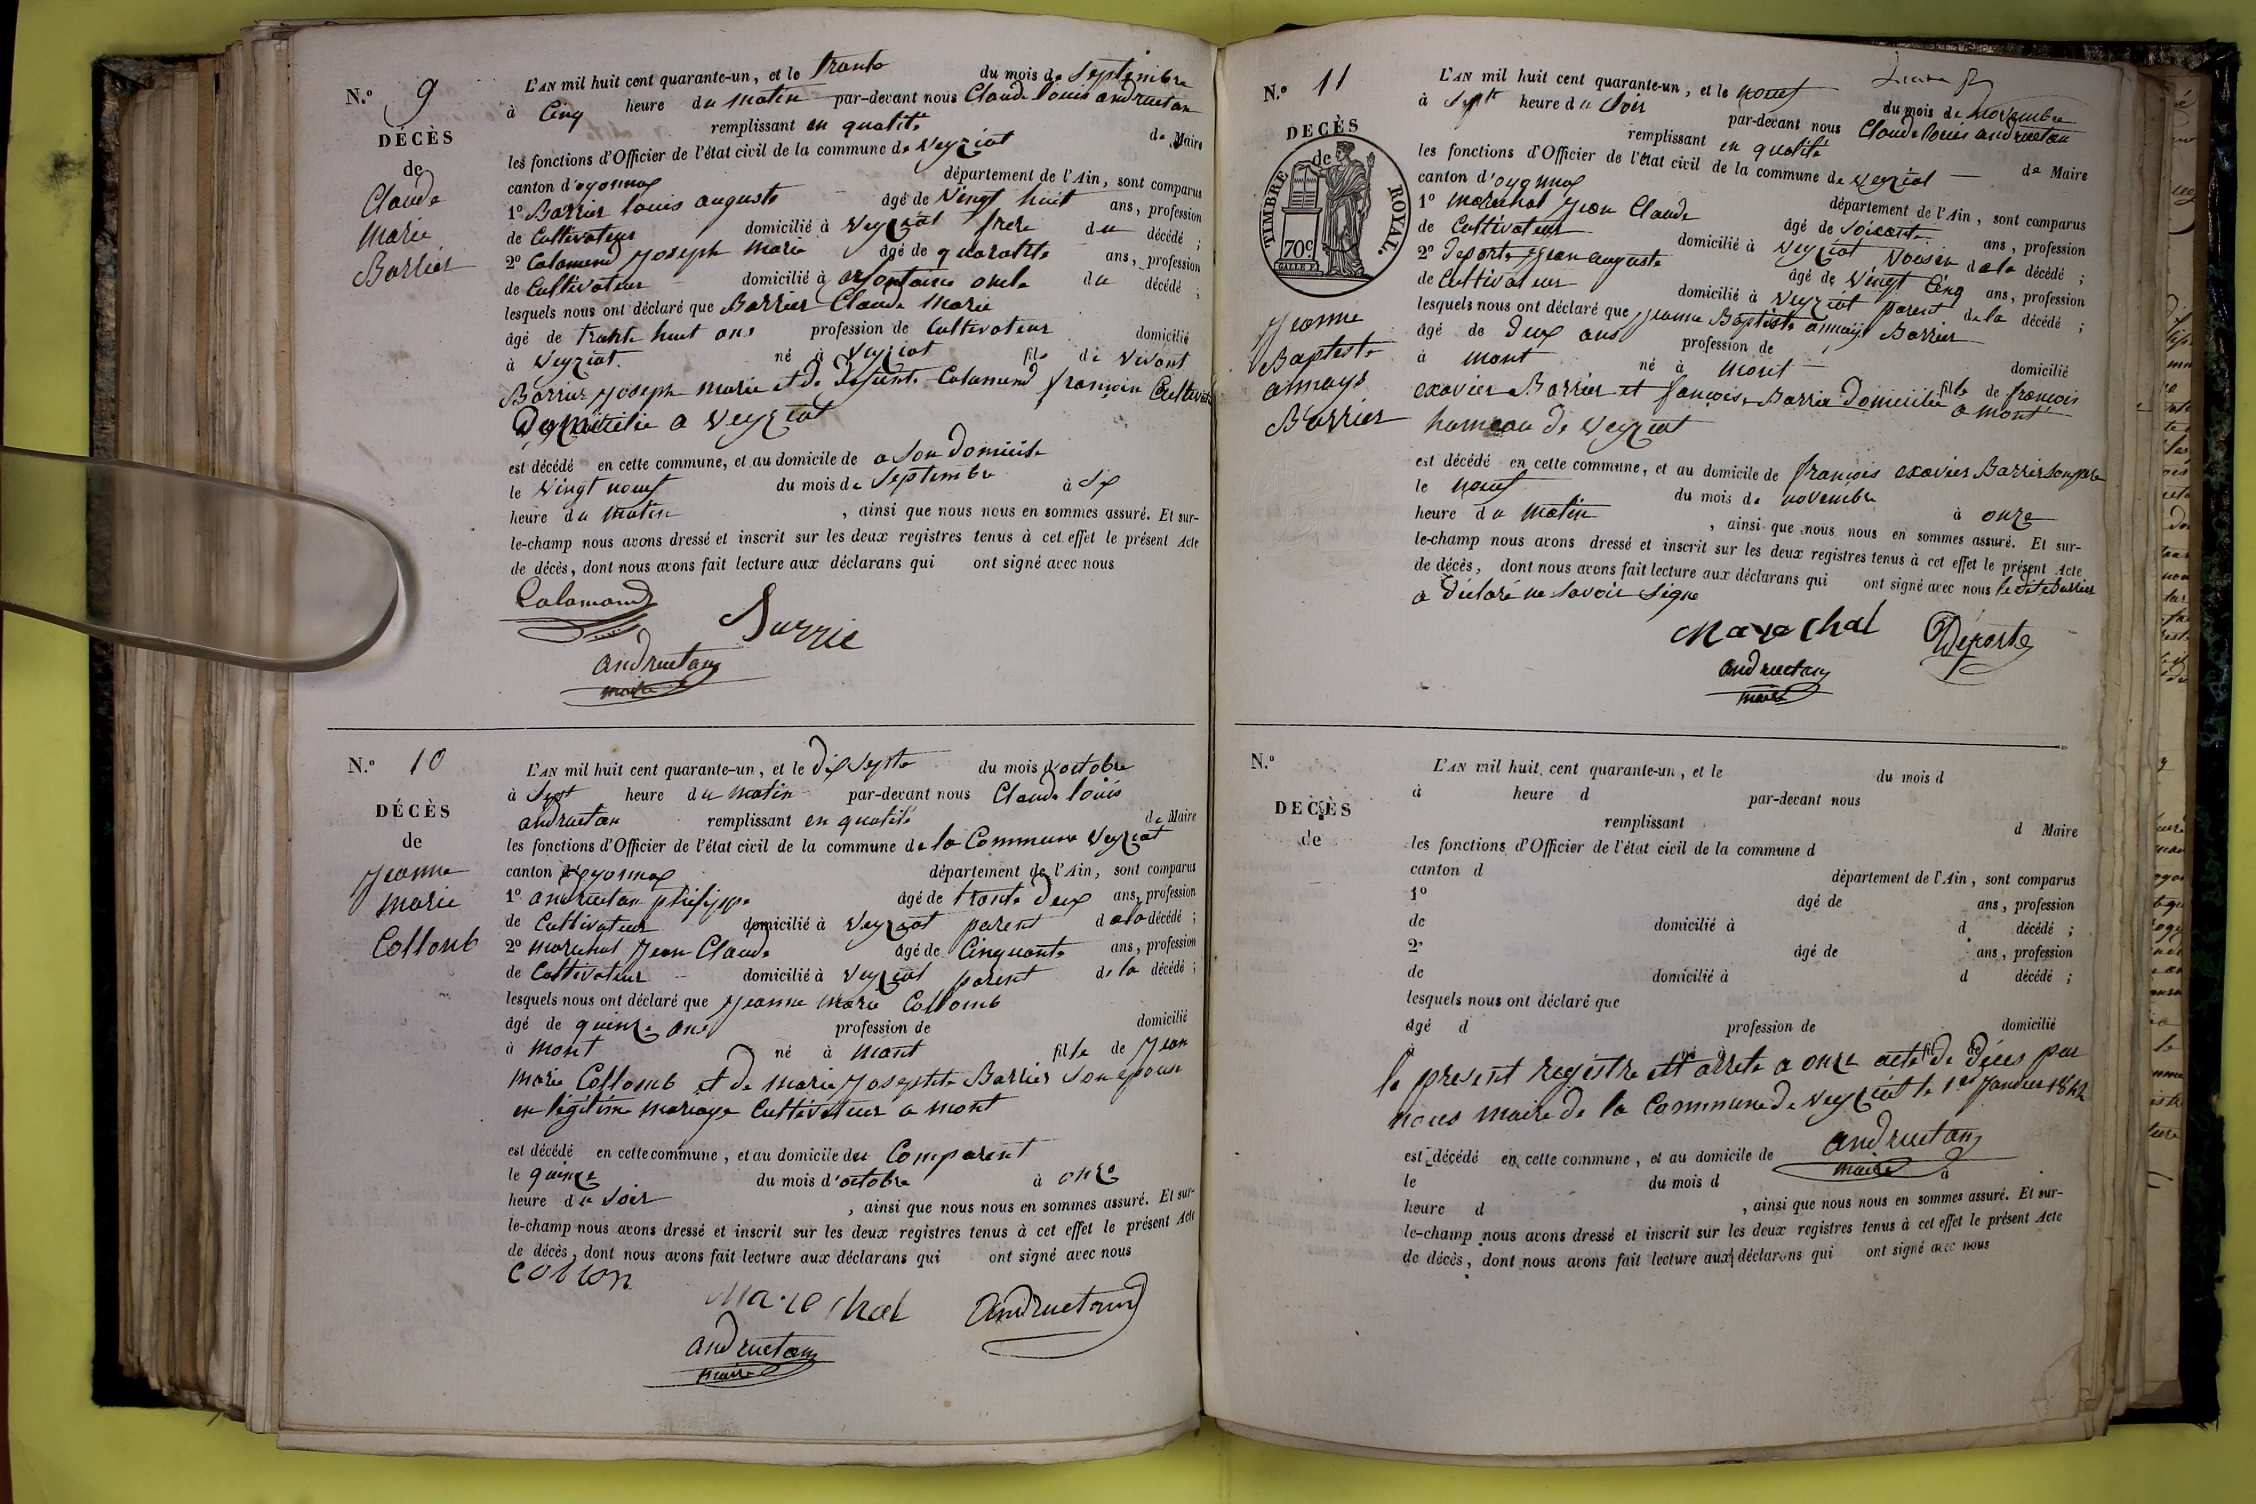 N.º 9
DÉCÈS
de
Claude
Marie
Barrier
L'AN mil huit cent quarante-un, et le trente du mois de Septembre
à Cinq heure du matin par-devant nous Claude louis andruetan
remplissant en qualité de Maire
les fonctions d'Officier de l'état civil de la commune de Veyziat
canton d'oyonnax département de l'Ain, sont comparus
1º Barrier louis auguste âgé de Vingt huit ans, profession
de Cultivateur domicilié à Veyziat frere du décédé ;
2º Calamand Joseph Marie âgé de quarante ans, profession
de Cultivateur domicilié à arfontaine oncle du décédé ;
lesquels nous ont déclaré que Barrier Claude Marie
âgé de trante huit ans profession de Cultivateur domicilié
à Veyziat né à Veyziat fils de vivant
Barrier Joseph Marie et de defunte Calamand françoise Cultivat
Domicilié a Veyziat
est décédé en cette commune, et au domicile de a Son Domicile
le Vingt neuf du mois de Septembre à Six
heure du Matin , ainsi que nous nous en sommes assuré. Et sur-
le-champ nous avons dressé et inscrit sur les deux registres tenus à cet effet le présent Acte
de décès, dont nous avons fait lecture aux déclarans qui ont signé avec nous
Calamand
Barrie
andruetan
maire
N.º 10
DÉCÈS
de
Jeanne
Marie
Collomb
L'AN mil huit cent quarante-un, et le dix Septe du mois d'octobre
à Sept heure du Matin par-devant nous Claude louis
andruetan remplissant en qualité de Maire
les fonctions d'Officier de l'état civil de la commune de la Commune Veyziat
canton d'oyonnax département de l'Ain, sont comparus
1º andruetan philippe âgé de trente deux ans, profession
de Cultivateur domicilié à Veyziat parent de la décédé ;
2º Marechal Jean Claude âgé de Cinquante ans, profession
de Cultivateur domicilié à Veyziat parent de la décédé ;
lesquels nous ont déclaré que Jeanne Marie Collomb
âgé de quinze ans profession de domicilié
à Mont né à Mont fille de Jean
Marie Collomb et de Marie Josephte Barrier Son epouse
en légitime mariage Cultivateur a mont
est décédé en cette commune, et au domicile du Comparent
le quinze du mois d'octobre à onze
heure du Soir , ainsi que nous nous en sommes assuré. Et sur-
le-champ nous avons dressé et inscrit sur les deux registres tenus à cet effet le présent Acte
de décès, dont nous avons fait lecture aux déclarans qui ont signé avec nous
Marechal andruetan
andruetan
maire
N.º 11
DECÈS
de
TIMBRE ROYAL.
70 c
Jeanne
Baptiste
Barrier
L'AN mil huit cent quarante-un, et le neuf du mois de Novembre
à Septe heure du Soir par-devant nous Claude louis andruetan
remplissant en qualité de Maire
les fonctions d'Officier de l'état civil de la commune de Veyziat
canton d'oyonnax département de l'Ain, sont comparus
1º Marechal Jean Claude âgé de Soixante ans, profession
de Cultivateur domicilié à Veyziat Voisin de la décédé ;
2º Deporte Jean auguste âgé de Vingt Cinq ans, profession
de Cultivateur domicilié à Veyziat parent de la décédé ;
lesquels nous ont déclaré que Jeanne Baptiste Barrier
âgé de deux ans profession de domicilié
à Mont né à Mont fille de françois
exavier Barrier et françoise Barrier Domicilié a Mont
hameau de Veyziat
est décédé en cette commune, et au domicile de françois exavier Barrier Son pere
le neuf du mois de novembre à onze
heure du Matin , ainsi que nous nous en sommes assuré. Et sur-
le-champ nous avons dressé et inscrit sur les deux registres tenus à cet effet le présent Acte
de décès, dont nous avons fait lecture aux déclarans qui ont signé avec nous le dit Barrier
a Déclaré ne Savoir Signe
Marechal Deporte
andruetan
maire
N.º
DECÈS
de
L'AN mil huit cent quarante-un, et le du mois d
à heure d par-devant nous
remplissant d Maire
les fonctions d'Officier de l'état civil de la commune d
canton d département de l'Ain, sont comparus
1º âgé de ans, profession
de domicilié à d décédé ;
2º âgé de ans, profession
de domicilié à d décédé ;
lesquels nous ont déclaré que
âgé d profession de domicilié
à né à fil de
le present registre est arreté a onze acte de déces par
nous maire de la Commune de Veyziat le 1er Janvier 1842
andruetan
maire
est décédé en cette commune, et au domicile de
le du mois d à
heure d , ainsi que nous nous en sommes assuré. Et sur-
le-champ nous avons dressé et inscrit sur les deux registres tenus à cet effet le présent Acte
de décès, dont nous avons fait lecture aux déclarans qui ont signé avec nous